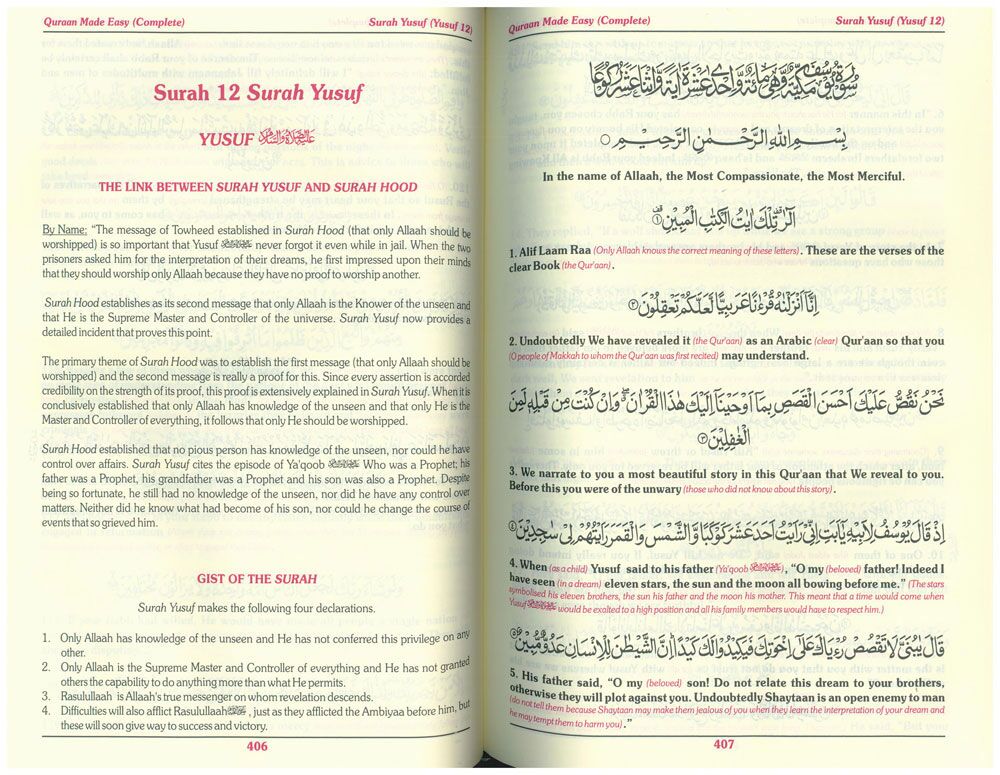 Quraan Made Easy (Complete) Surah Yusuf (Yusuf 12)
Surah 12 Surah Yusuf
YUSUF عليه الصلاة والسلام
THE LINK BETWEEN SURAH YUSUF AND SURAH HOOD
By Name: “The message of Towheed established in Surah Hood (that only Allaah should be
worshipped) is so important that Yusuf never forgot it even while in jail. When the two
prisoners asked him for the interpretation of their dreams, he first impressed upon their minds
that they should worship only Allaah because they have no proof to worship another.
Surah Hood establishes as its second message that only Allaah is the Knower of the unseen and
that He is the Supreme Master and Controller of the universe. Surah Yusuf now provides a
detailed incident that proves this point.
The primary theme of Surah Hood was to establish the first message (that only Allaah should be
worshipped) and the second message is really a proof for this. Since every assertion is accorded
credibility on the strength of its proof, this proof is extensively explained in Surah Yusuf. When it is
conclusively established that only Allaah has knowledge of the unseen and that only He is the
Master and Controller of everything, it follows that only He should be worshipped.
Surah Hood established that no pious person has knowledge of the unseen, nor could he have
control over affairs. Surah Yusuf cites the episode of Ya'qoob Who was a Prophet; his
father was a Prophet, his grandfather was a Prophet and his son was also a Prophet. Despite
being so fortunate, he still had no knowledge of the unseen, nor did he have any control over
matters. Neither did he know what had become of his son, nor could he change the course of
events that so grieved him.
GIST OF THE SURAH
Surah Yusuf makes the following four declarations.
1. Only Allaah has knowledge of the unseen and He has not conferred this privilege on any
other.
2. Only Allaah is the Supreme Master and Controller of everything and He has not granted
others the capability to do anything more than what He permits.
3. Rasulullaah is Allaah's true messenger on whom revelation descends.
4. Difficulties will also afflict Rasulullaah , just as they afflicted the Ambiyaa before him, but
these will soon give way to success and victory.
406
Quraan Made Easy (Complete) Surah Yusuf (Yusuf 12)
سُوْرَةُ يُوْسُفَ مَكِّيَّةٌ وَّهِيَ مِائَةٌ وَّاِحْدٰى عَشْرَةَ اٰيَةً وَّاثْنَا عَشَرَ رُكُوْعًا
بِسْمِ اللهِ الرَّحْمٰنِ الرَّحِيْمِ
In the name of Allaah, the Most Compassionate, the Most Merciful.
الٓرٰ تِلْكَ اٰيٰتُ الْكِتٰبِ الْمُبِيْنِ ۝۱
1. Alif Laam Raa (Only Allaah knows the correct meaning of these letters). These are the verses of the
clear Book (the Qur'aan).
اِنَّآ اَنْزَلْنٰهُ قُرْءٰنًا عَرَبِيًّا لَّعَلَّكُمْ تَعْقِلُوْنَ ۝۲
2. Undoubtedly We have revealed it (the Qur'aan) as an Arabic (clear) Qur'aan so that you
(O people of Makkah to whom the Qur'aan was first recited) may understand.
نَحْنُ نَقُصُّ عَلَيْكَ اَحْسَنَ الْقَصَصِ بِمَآ اَوْحَيْنَآ اِلَيْكَ هٰذَا الْقُرْاٰنَ وَاِنْ كُنْتَ مِنْ قَبْلِهٖ لَمِنَ
الْغٰفِلِيْنَ ۝۳
3. We narrate to you a most beautiful story in this Qur'aan that We reveal to you.
Before this you were of the unwary (those who did not know about this story).
اِذْ قَالَ يُوْسُفُ لِاَبِيْهِ يٰٓاَبَتِ اِنِّيْ رَاَيْتُ اَحَدَ عَشَرَ كَوْكَبًا وَّالشَّمْسَ وَالْقَمَرَ رَاَيْتُهُمْ لِيْ سٰجِدِيْنَ ۝۴
4. When (as a child) Yusuf said to his father (Ya'qoob ), “O my (beloved) father! Indeed I
have seen (in a dream) eleven stars, the sun and the moon all bowing before me.” (The stars
symbolised his eleven brothers, the sun his father and the moon his mother. This meant that a time would come when
Yusuf would be exalted to a high position and all his family members would have to respect him.)
قَالَ يٰبُنَيَّ لَا تَقْصُصْ رُءْيَاكَ عَلٰٓى اِخْوَتِكَ فَيَكِيْدُوْا لَكَ كَيْدًا اِنَّ الشَّيْطٰنَ لِلْاِنْسَانِ عَدُوٌّ مُّبِيْنٌ ۝۵
5. His father said, “O my (beloved) son! Do not relate this dream to your brothers,
otherwise they will plot against you. Undoubtedly Shaytaan is an open enemy to man
(do not tell them because Shaytaan may make them jealous of you when they learn the interpretation of your dream and
he may tempt them to harm you).”
407